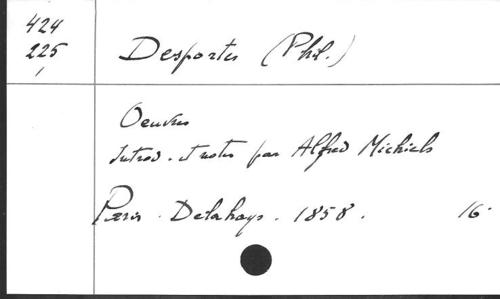 424
225
Desportes (Phil.)
Oeuvres
Introd. et notes par Alfred Michiels
Paris. Delahays. 1858. 16°